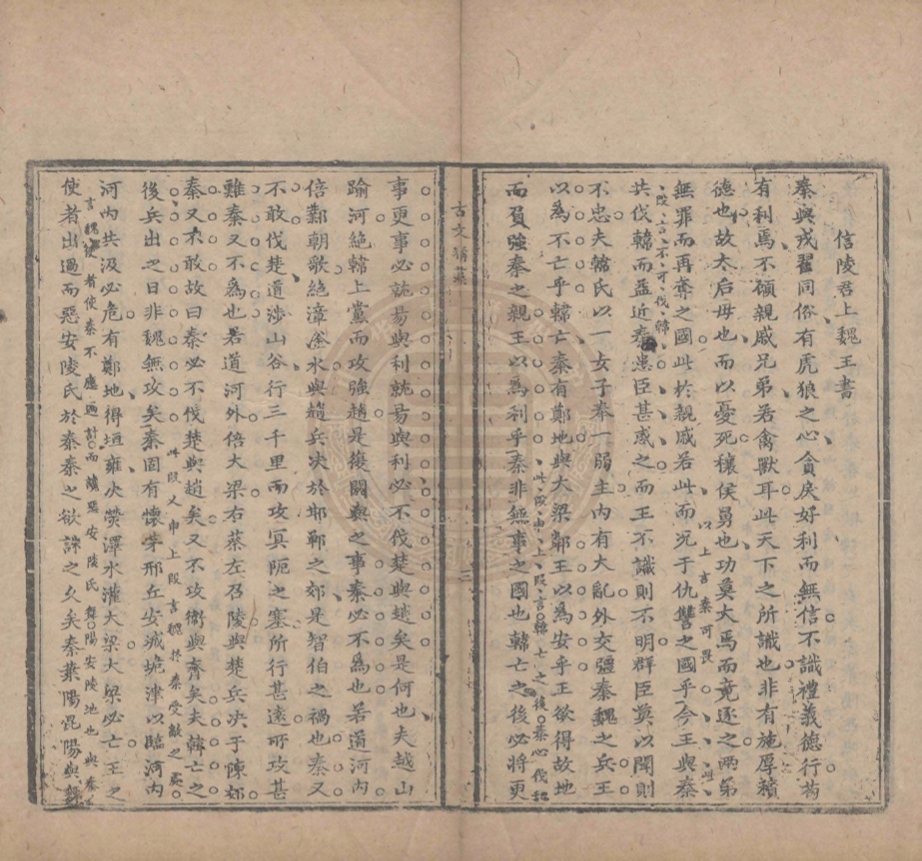 信陵君上魏王書
秦與戎翟同俗有虎狼之心貪戾好利而無信不識禮義德行苟
有利焉不顧親戚兄弟若禽獸耳此天下之所識也非有施厚積
德也故太后母也而以憂死穰侯舅也功莫大焉而竟逐之兩弟
無罪而再奪之國此於親戚若此而况于仇讐之國乎以上言秦可畏今王與秦
共伐韓而益近秦患臣甚惑之而王不識則不明群臣莫以聞則
不忠夫韓氏以一女子奉一弱主内有大亂外交彊秦魏之兵王
以爲不亡乎韓亡秦有鄭地與大梁鄰王以爲安乎王欲得故地
而負强秦之親王以爲利乎秦非無事之國也韓亡之後必將更
古文
事更事必就易與利就易與利必不伐楚與趙矣是何也夫越山
踰河絶韓上黨而攻强趙是復閼與之事秦必不爲也若道河内
倍鄴朝歌絶漳滏水與趙兵决於邯鄲之郊是智伯之禍也秦又
不敢伐楚道涉山谷行三千里而攻冥阨之塞所行甚遠所攻甚
難秦又不爲也若道河外倍大梁右蔡左召陵與楚兵决于陳郊
秦又不敢故曰秦必不伐楚與趙矣又不攻衛與齊矣夫韓亡之
後兵出之日非魏無攻矣秦固有懷茅邢丘安城垝津以臨河内
河内共汲必危有鄭地得垣雍决熒澤水灌大梁大梁必亡王之
使者出過而惡安陵氏於秦秦之欲誅之久矣秦葉陽昆陽與舞